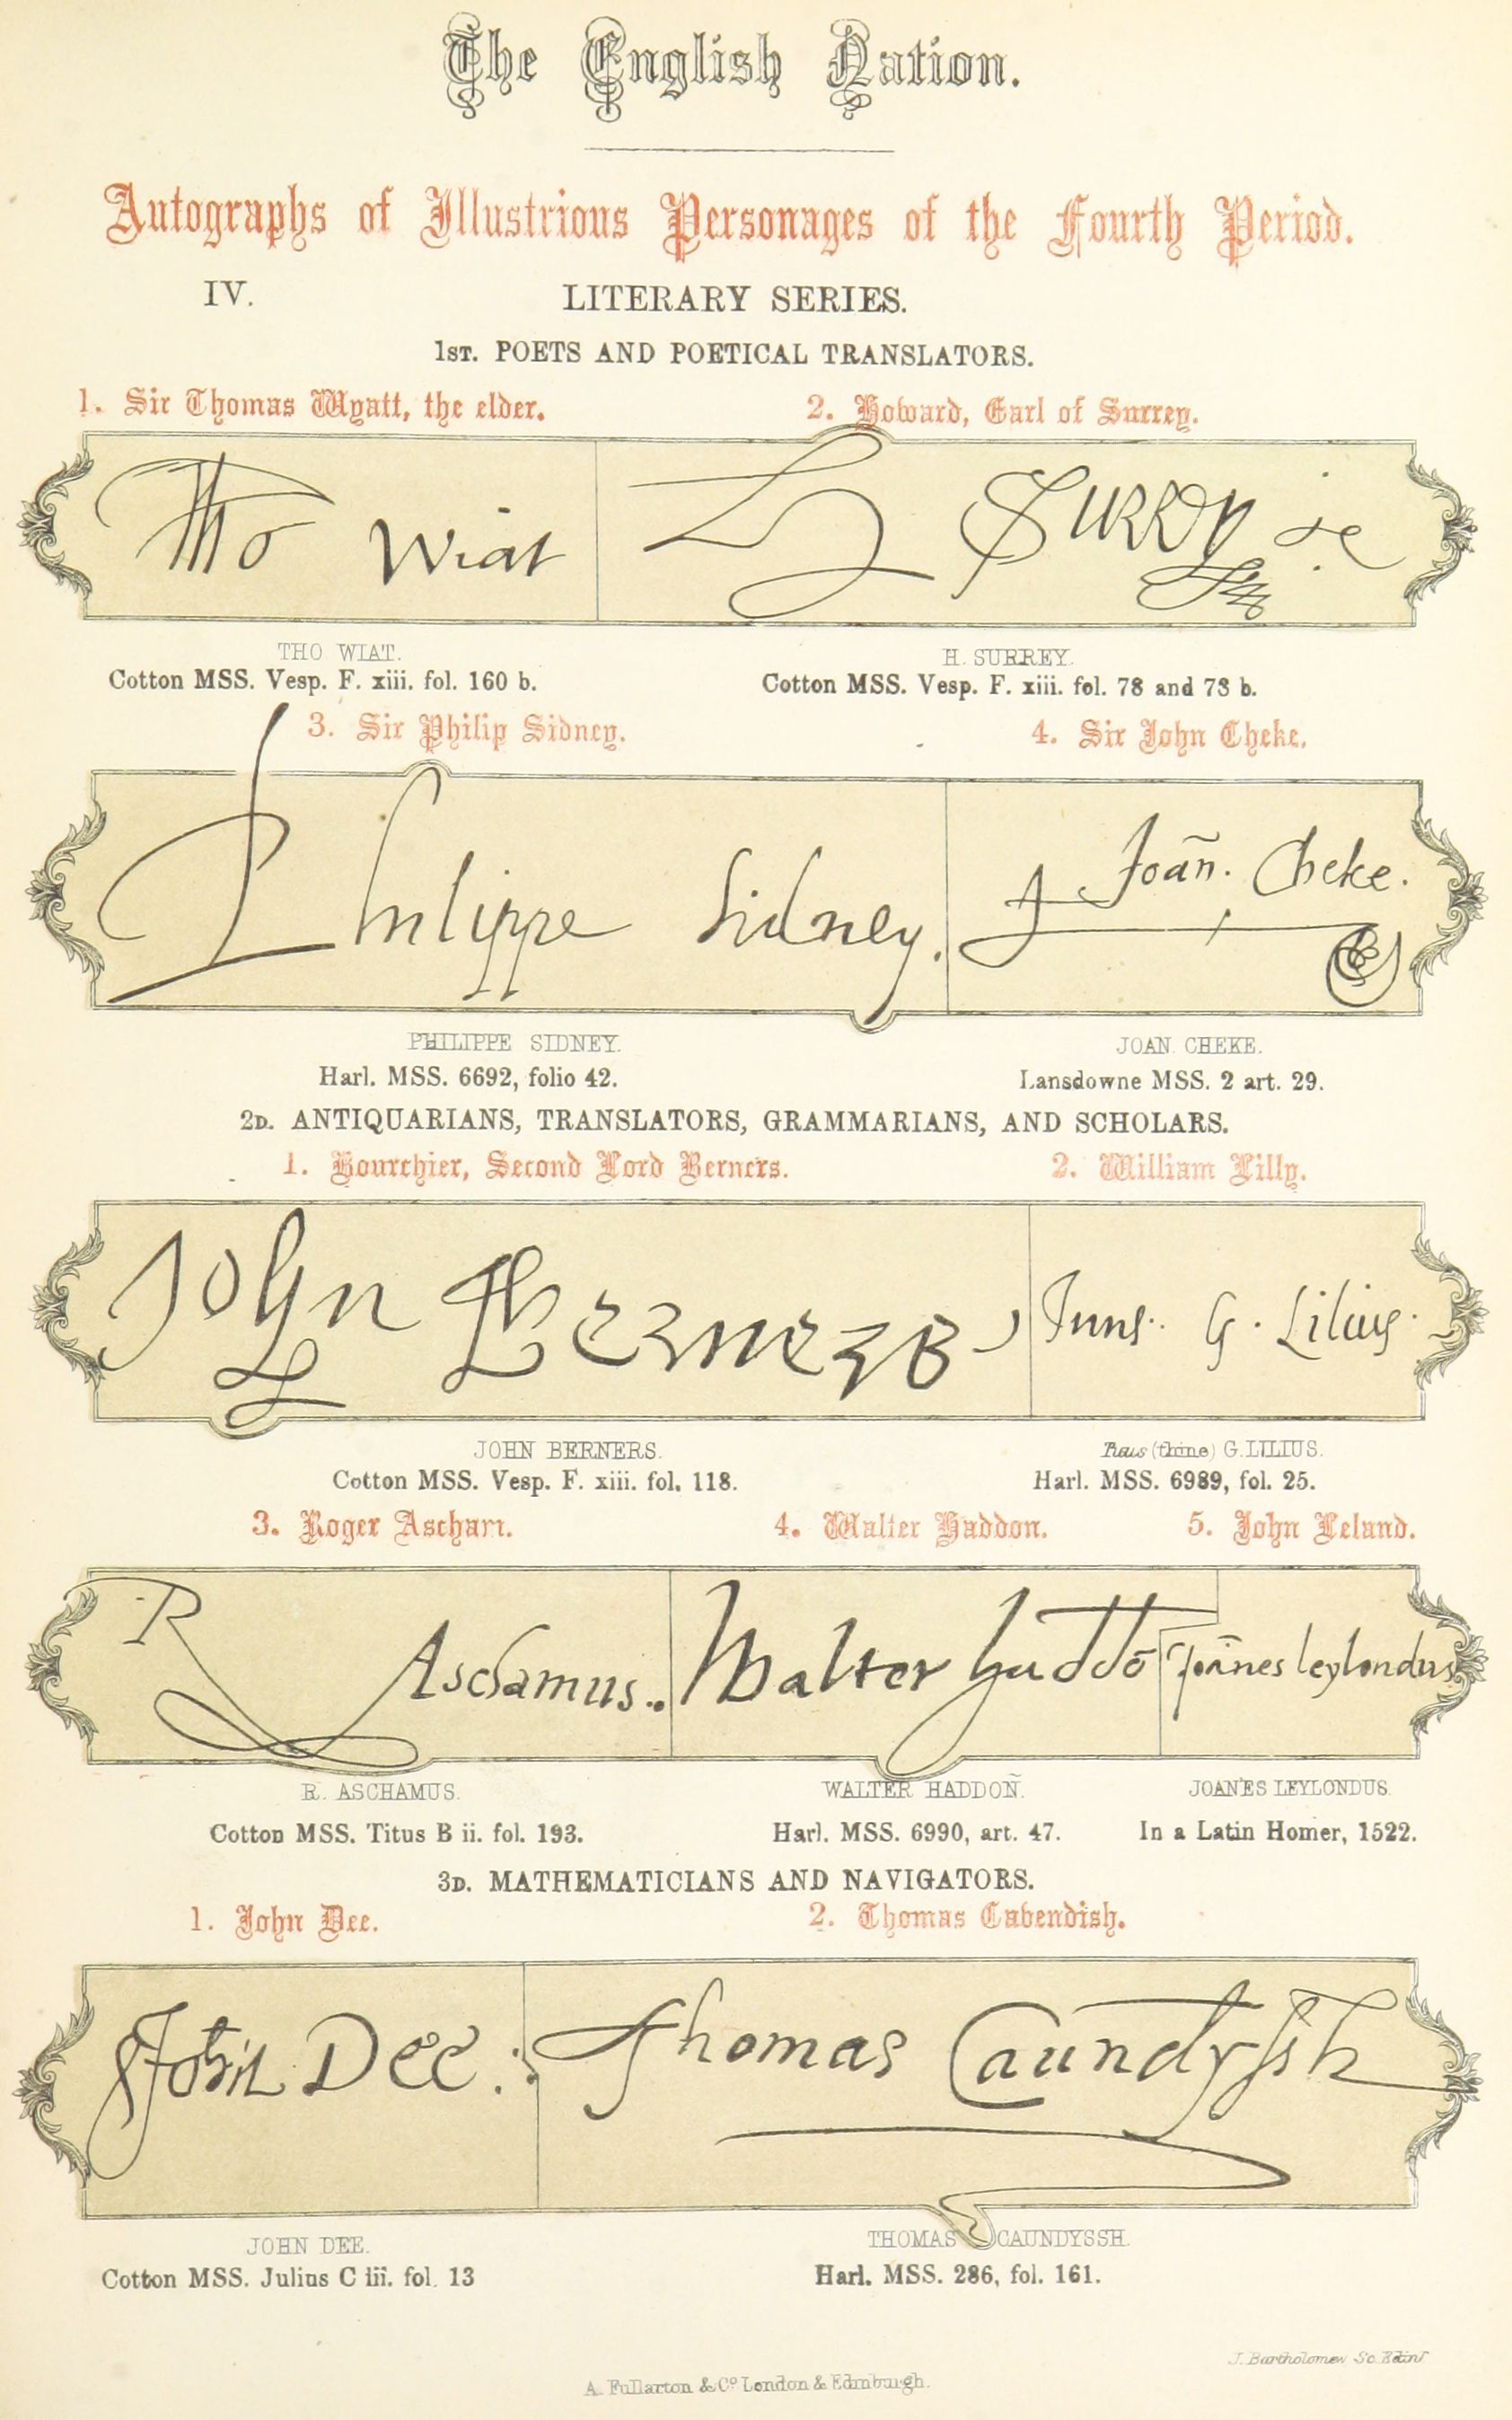 The English Nation.
Autographs of Illustrious Personages of the Fourth Period.
IV. LITERARY SERIES.
1ST. POETS AND POETICAL TRANSLATORS.
1. Sir Thomas Wyatt, the elder. 2. Howard, Earl of Surrey.
Tho Wiat H Surrey
THO WIAT. H. SURREY.
Cotton MSS. Vesp. F. xiii. fol. 160 b. Cotton MSS. Vesp. F. xiii. fol. 78 and 78 b.
3. Sir Philip Sidney. 4. Sir John Cheke.
Philippe Sidney. Joañ. Cheke.
PHILIPPE SIDNEY. JOAN. CHEKE.
Harl. MSS. 6692, folio 42. Lansdowne MSS. 2 art. 29.
2D. ANTIQUARIANS, TRANSLATORS, GRAMMARIANS, AND SCHOLARS.
1. Bourchier, Second Lord Berners. 2. William Lilly.
John Berners G. Lilius.
JOHN BERNERS. (thine) G. LILIUS.
Cotton MSS. Vesp. F. xiii. fol. 118. Harl. MSS. 6989, fol. 25.
3. Roger Ascham. 4. Walter Haddon. 5. John Leland.
R Aschamus.. Walter Haddō Joānes leylondus
R. ASCHAMUS. WALTER HADDOÑ. JOANES LEYLONDUS.
Cotton MSS. Titus B ii. fol. 193. Harl. MSS. 6990, art. 47. In a Latin Homer, 1522.
3D. MATHEMATICIANS AND NAVIGATORS.
1. John Dee. 2. Thomas Cavendish.
John Dee. Thomas Caundyssh
JOHN DEE. THOMAS CAUNDYSSH.
Cotton MSS. Julius C iii. fol. 13 Harl. MSS. 286, fol. 161.
J. Bartholomew Sc. Edinr
A. Fullarton & Co. London & Edinburgh.